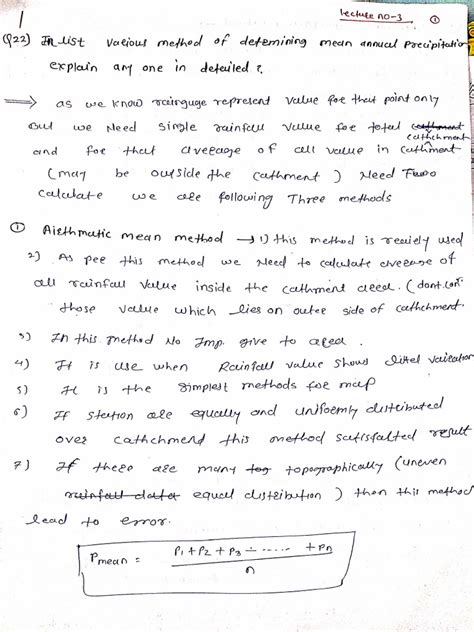 Lecture no-3 ①
Q22) In list vacious method of detemining mean annual precipitation
explain any one in detailed ?
⟹ as we know rainguge represent value foe that point only
but we Need single rainfall value foe total
cathchment
and foe that aveeage of all value in cathment
(may be outside the cathment ) Need
calculate we are following Three methods
① Aisthmatic mean method → 1) this method is used
2) As pee this method we Need to calculate aveeage of
all rainfall value inside the cathment aeea. (dont
those value which lies on outee side of cathchment.
3) In this method No Imp. give to aeea.
4) It is use when Rainfall value shows littel
5) It is the simplest methods foe map
6) If station ale equally and unifoemly distributed
over cathchment this method result
7) If theee ale many topographically (uneven
rainfall data equal distribution ) then this method
lead to error.
Pmean = P1 + P2 + P3 + ...... + Pn / n